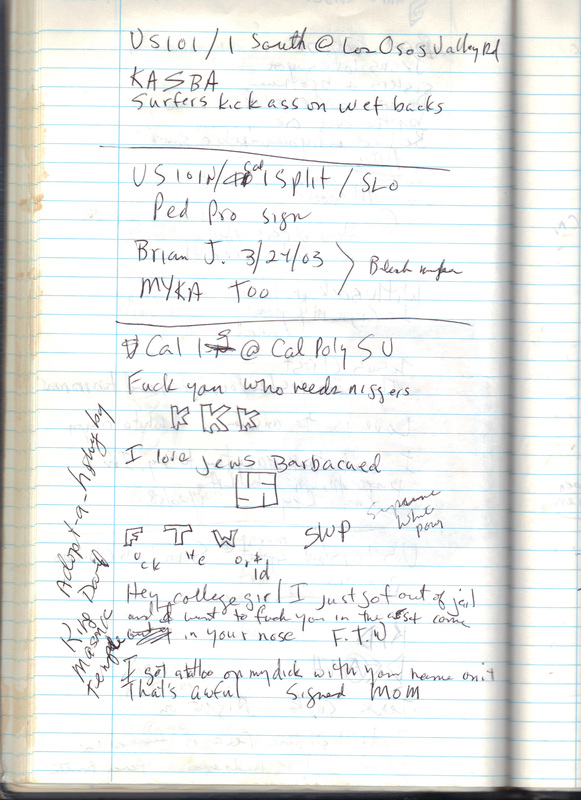 US101/1 South @ Los Osos Valley Rd
KASBA
Surfers kick ass on wet backs
US 101N/Cal 1 Split / SLO
Ped Pro sign
Brian J. 3/24/03
MYKA TOO
Black
Cal 1 @ Cal Poly SU
Fuck you who needs niggers
KKK
I love jews Barbacued
F T W
uck He orld
SWP
Supreme
White
powr
Hey college girl I just got out of jail
and I want to fuck you in the ass come
in your nose F.T.W
I got attoo on my dick with your name on it
That's awful Signed MOM
Adopt-a-highway by
King David
Masonic
Temple